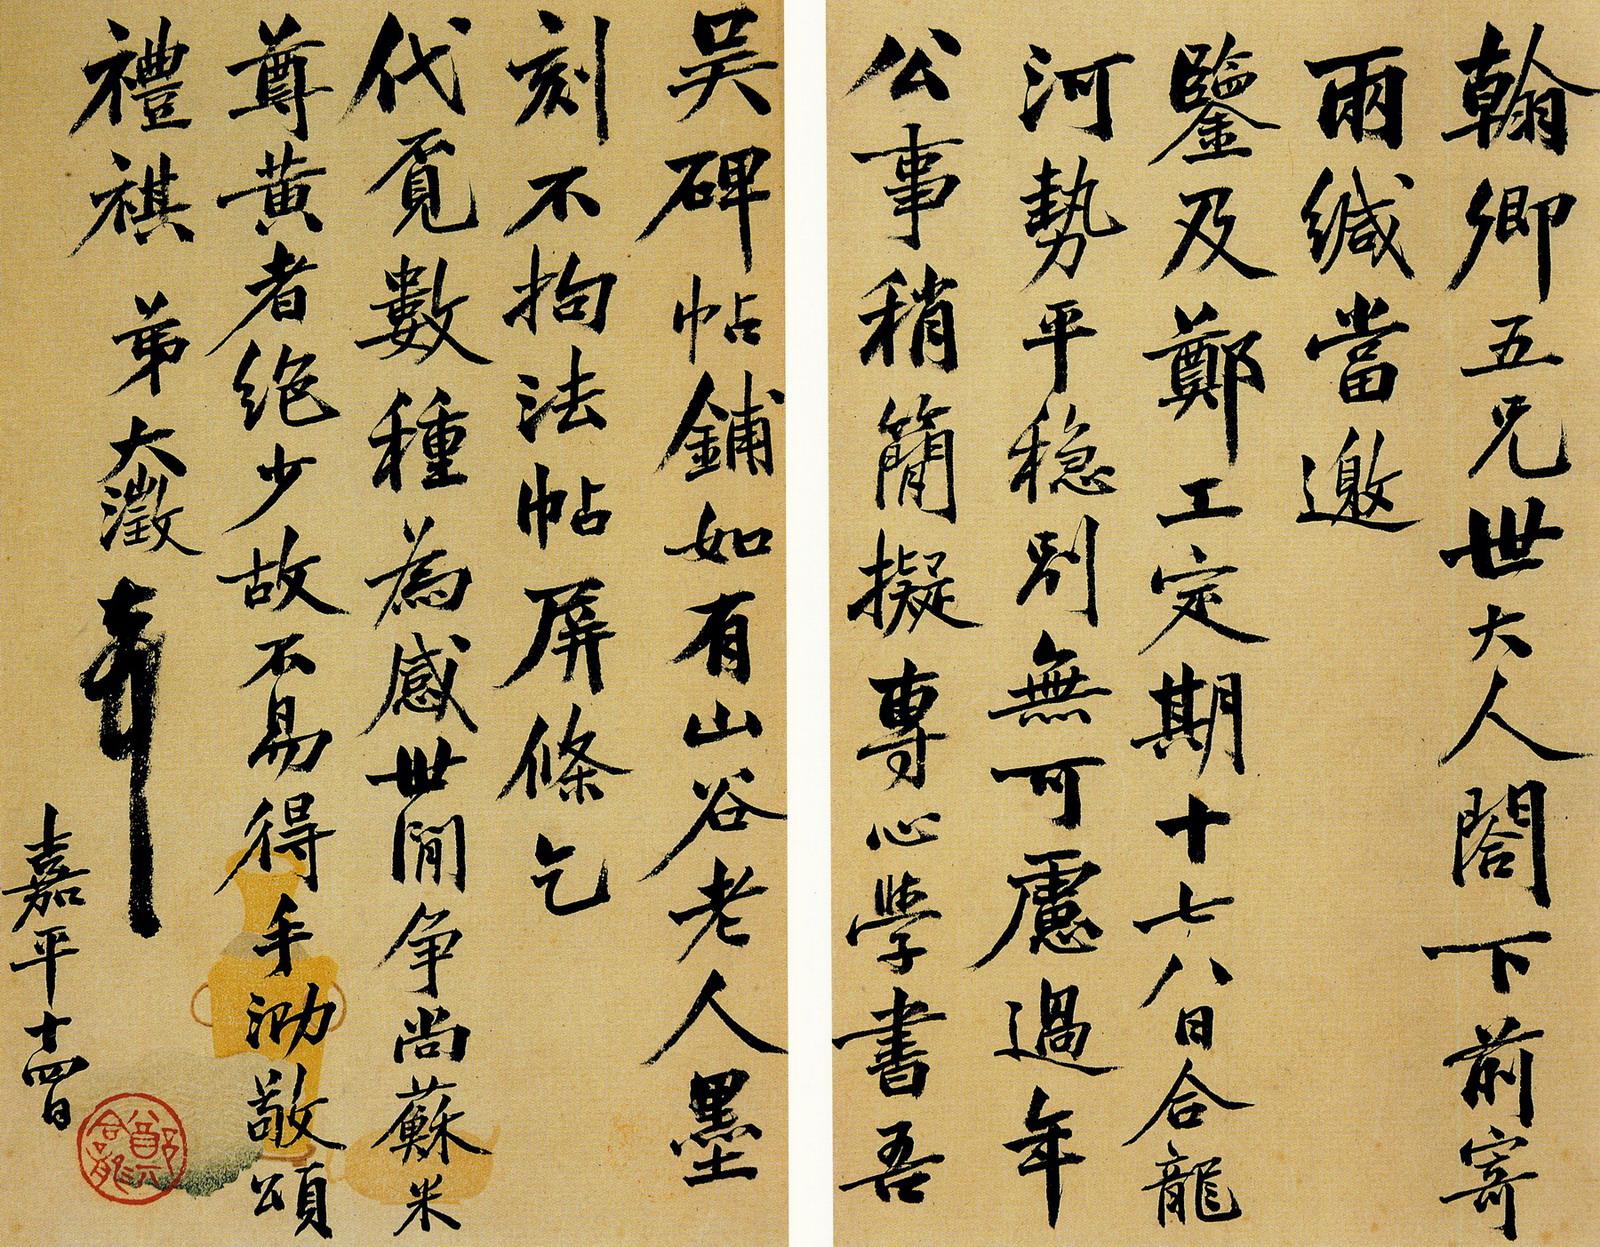 翰卿五兄世大人閤下前寄
兩緘當邀
鑒及鄭工定期十七八日合龍
河勢平穩別無可慮過年
公事稍簡擬專心學書吾
吳碑帖鋪如有山谷老人墨
刻不拘法帖屏條乞
代覓數種為感世間爭尚蘇米
尊黃者絕少故不易得手泐敬頌
禮祺 弟大澂
嘉平十四日
鄭六合龍